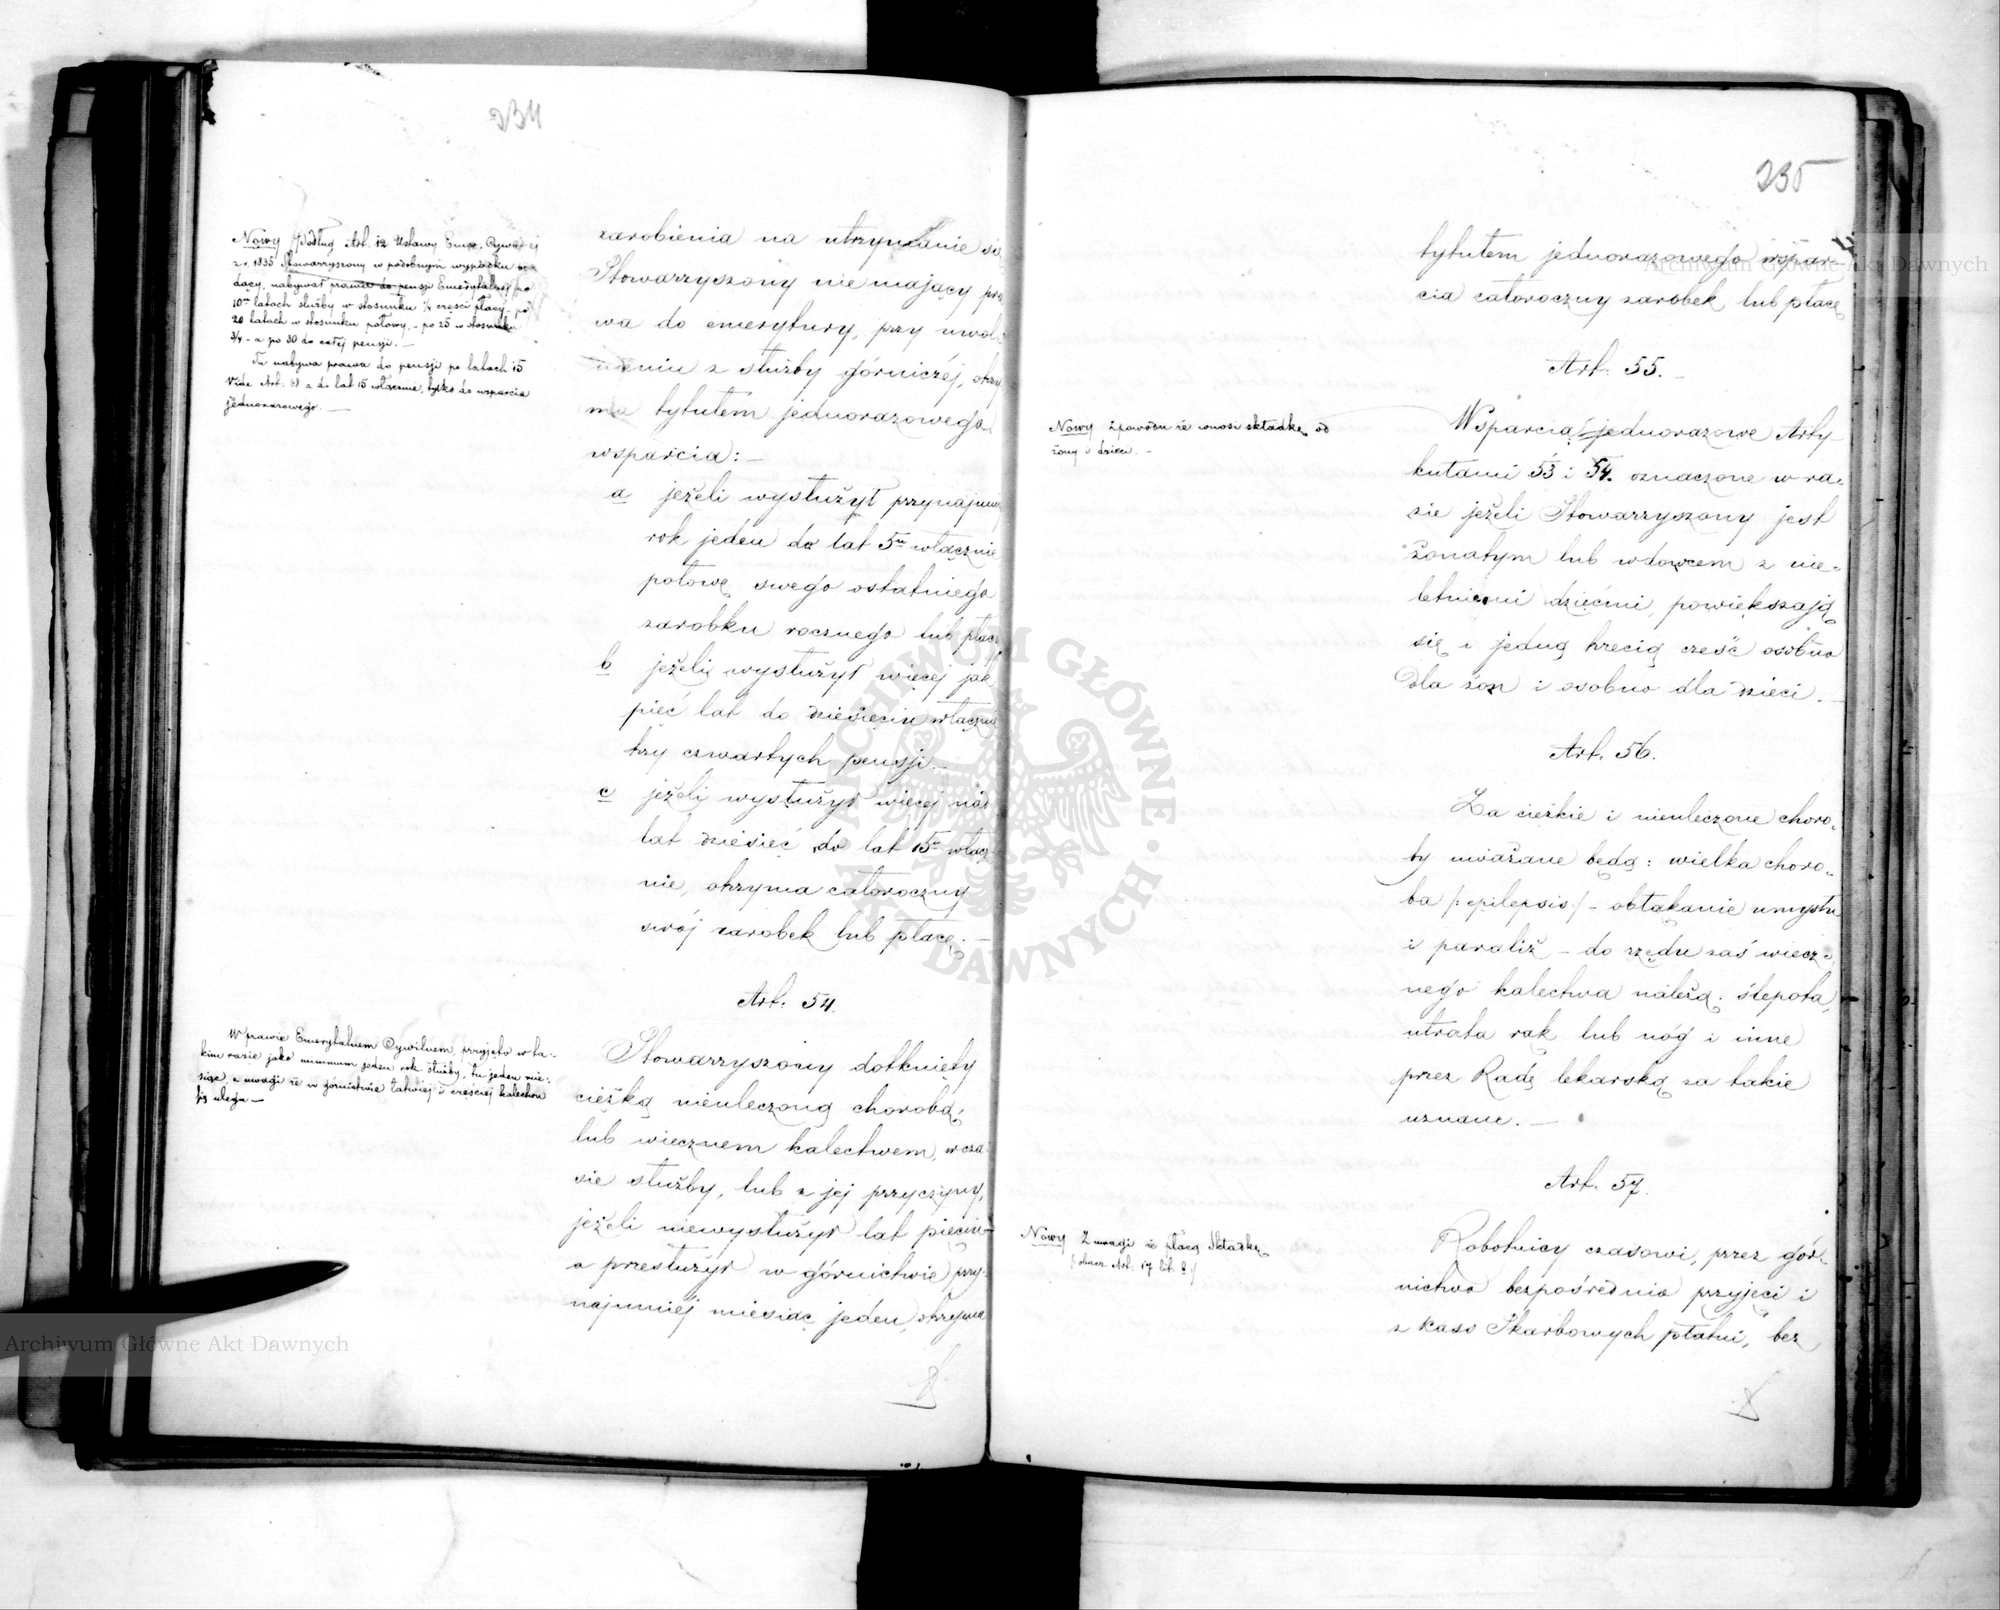 234
Nowy Podług Art. 12 Ustawy Emer. Cywilnej
z r. 1835 Stowarzyszony w podobnym wypadku
dący, nabywał prawa do pensji Emerytalnej po
10ciu latach służby w stosunku 1/4 części płacy, po
20 latach w stosunku połowy, - po 25 w stosunku
3/4 - a po 30 do całej pensji. -
Tu nabywa prawa do pensji po latach 15
Vide Art. 61 a do lat 15 włącznie, tylko do wsparcia
jednorazowego. -
zarobienia na utrzymanie się
Stowarzyszony nie mający pra
wa do emerytury, przy uwol-
nieniu z służby górniczéj, otrzy
ma tytułem jednorazowego
wsparcia: -
a jeżeli wysłużył przynajmniej
rok jeden do lat 5u włącznie
połowę swego ostatniego
zarobku rocznego lub płacy
b jeżeli wysłużył więcej jak
pięć lat do dziesięciu włącznie
trzy czwartych pensji. -
c jeżeli wysłużył więcej nad
lat dziesięć do lat 15u włącz-
nie, otrzyma całoroczny
swój zarobek lub płacę. -
Art. 54.
W prawie Emerytalnem Cywilnem, przyjęto w ta-
kim razie jako minimum jeden rok służby, tu jeden mie-
siąc, z uwagi że w górnictwie łatwiej i częściej kalectwu
się ulega -
Stowarzyszony dotknięty
ciężką nieuleczoną chorobą,
lub wiecznem kalectwem, w cza-
sie służby, lub z jej przyczyny,
jeżeli niewysłużył lat pięciu
a przesłużył w górnictwie przy-
najmniej miesiąc jeden, otrzyma
235
tytułem jednorazowego wspar-
cia całoroczny zarobek lub płacę
Art. 55. -
Nowy z powodu że wnosi składkę od
żony i dzieci. -
Wsparcia jednorazowe Arty-
kułami 53 i 54. oznaczone w ra-
zie jeżeli Stowarzyszony jest
żonatym lub wdowcem z nie-
letniemi dziećmi, powiększają
się i jedną trzecią część osobno
dla żon i osobno dla dzieci. -
Art. 56.
Za ciężkie i nieuleczone choro-
by uważane będą: wielka choro-
ba /: epilepsis :/ - obłąkanie umysłu
i paraliż - do rzędu zaś wiecz-
nego kalectwa należą: ślepota,
utrata rąk lub nóg i inne
przez Radę lekarską za takie
uznane. -
Art. 57.
Nowy Z uwagi że płacą Składkę
/: obacz Art. 17 lit. c :/
Robotnicy czasowi, przez gór-
nictwo bezpośrednio przyjęci i
z kass Skarbowych płatni, bez
ARCHIWUM GŁÓWNE AKT DAWNYCH
Archiwum Główne Akt Dawnych
Archiwum Główne Akt Dawnych